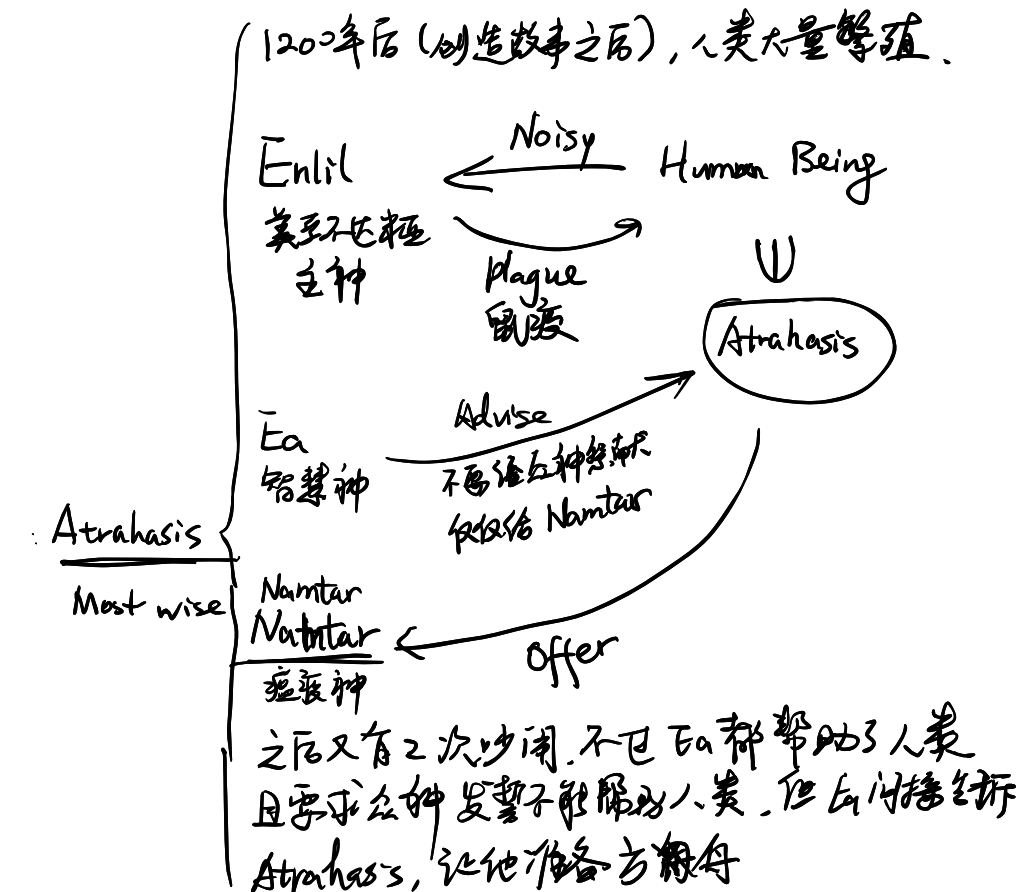 1200年后(创造故事之后),人类大量繁殖.
Noisy
Enlil
Human Being
美索不达米亚
主神
Plague
鼠疫
Atrahasis
Advise
Ea
智慧神
不要给众神祭献
仅仅给 Namtar
Atrahasis
Most wise
Namtar
Namtar
瘟疫神
Offer
之后又有2次吵闹.不过Ea都帮助了人类
且要求众神发誓不能帮助人类.但Ea间接告诉
Atrahasis,让他准备方舟